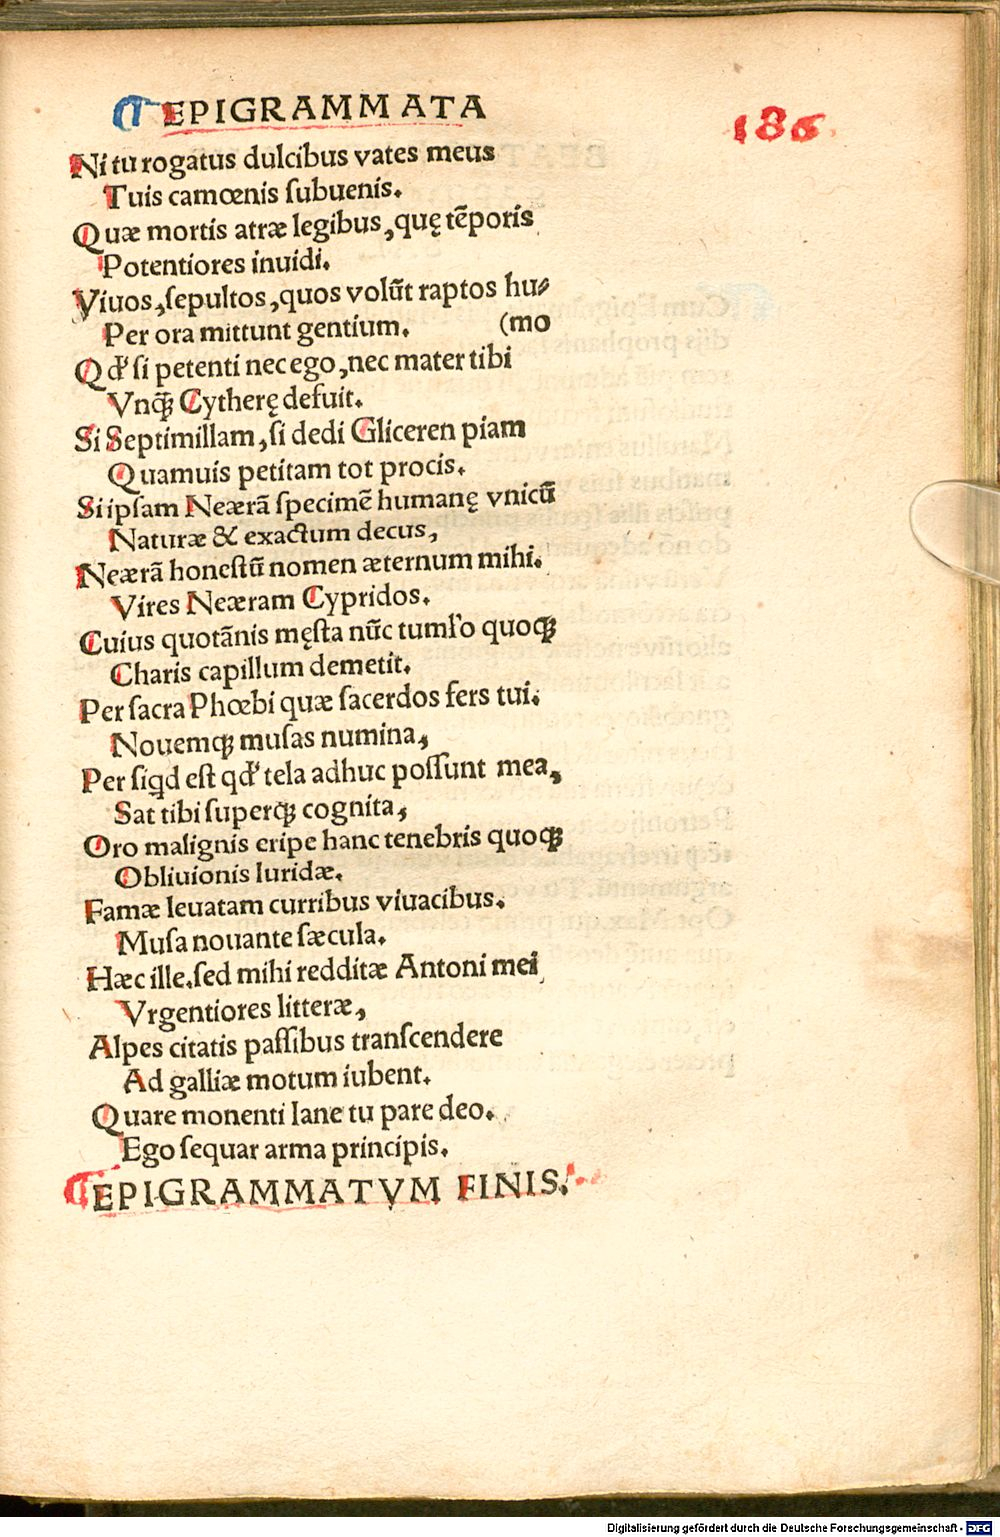 EPIGRAMMATA
186
Ni tu rogatus dulcibus vates meus
Tuis camœnis ſubuenis.
Quæ mortis atræ legibus, quę tēporis
Potentiores inuidi.
Viuos, ſepultos, quos volūt raptos hu⸗
Per ora mittunt gentium. (mo
Qđ ſi petenti nec ego, nec mater tibi
Vnq̃ꝫ Cytherę defuit.
Si Septimillam, ſi dedi Gliceren piam
Quamuis petitam tot procis.
Si ipſam Neærā ſpecimē humanę vnicū
Naturæ & exactum decus,
Neærā honeſtū nomen æternum mihi.
Vires Neæram Cypridos.
Cuius quotānis męſta nūc tumľo quoqꝫ
Charis capillum demetit.
Per ſacra Phœbi quæ ſacerdos fers tui.
Nouemqꝫ muſas numina,
Per ſiqd eſt qđ tela adhuc poſſunt mea,
Sat tibi ſuperqꝫ cognita,
Oro malignis eripe hanc tenebris quoqꝫ
Obliuionis luridæ.
Famæ leuatam curribus viuacibus.
Muſa nouante ſæcula.
Hæc ille. ſed mihi redditæ Antoni mei
Vrgentiores litteræ,
Alpes citatis paſſibus tranſcendere
Ad galliæ motum iubent.
Quare monenti Iane tu pare deo.
Ego ſequar arma principis.
EPIGRAMMATVM FINIS.
Digitalisierung gefördert durch die Deutsche Forschungsgemeinschaft - DFG